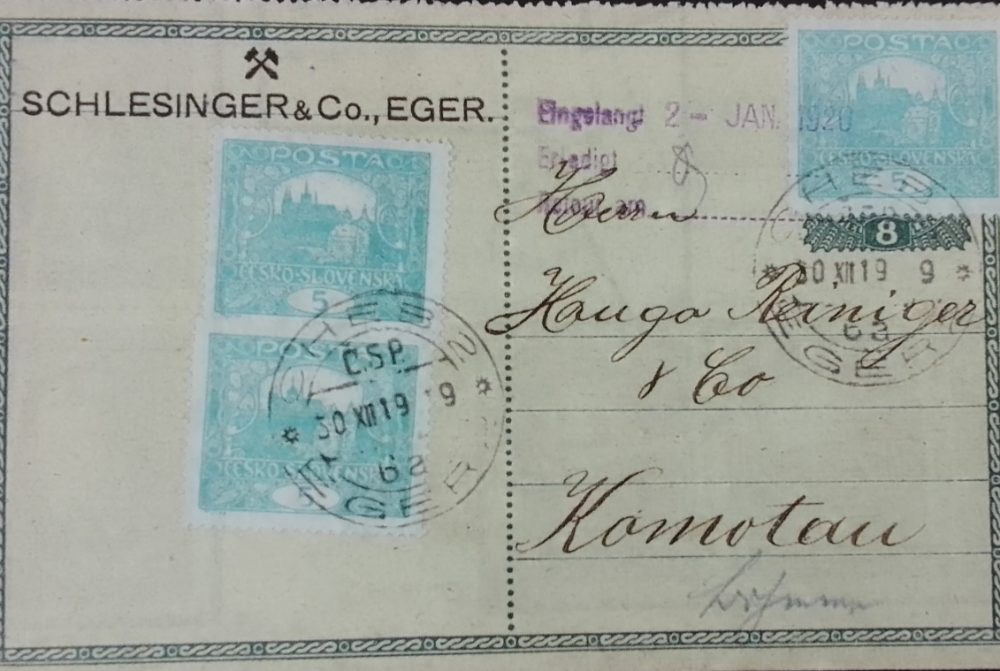 SCHLESINGER & Co., EGER.
POSTA
ČESKO-SLOVENSKÁ
5
POSTA
ČESKO-SLOVENSKÁ
CHEB
Č.S.P.
30 XII 19 9
6a
EGER
Eingelangt 2- JAN. 1920
Erledigt
Retour am
POSTA
ČESKO-SLOVENSKÁ
5
8
CHEB
30 XII 19 9
6a
EGER
Herrn
Hugo Reiniger
& Co
Komotau
Böhmen